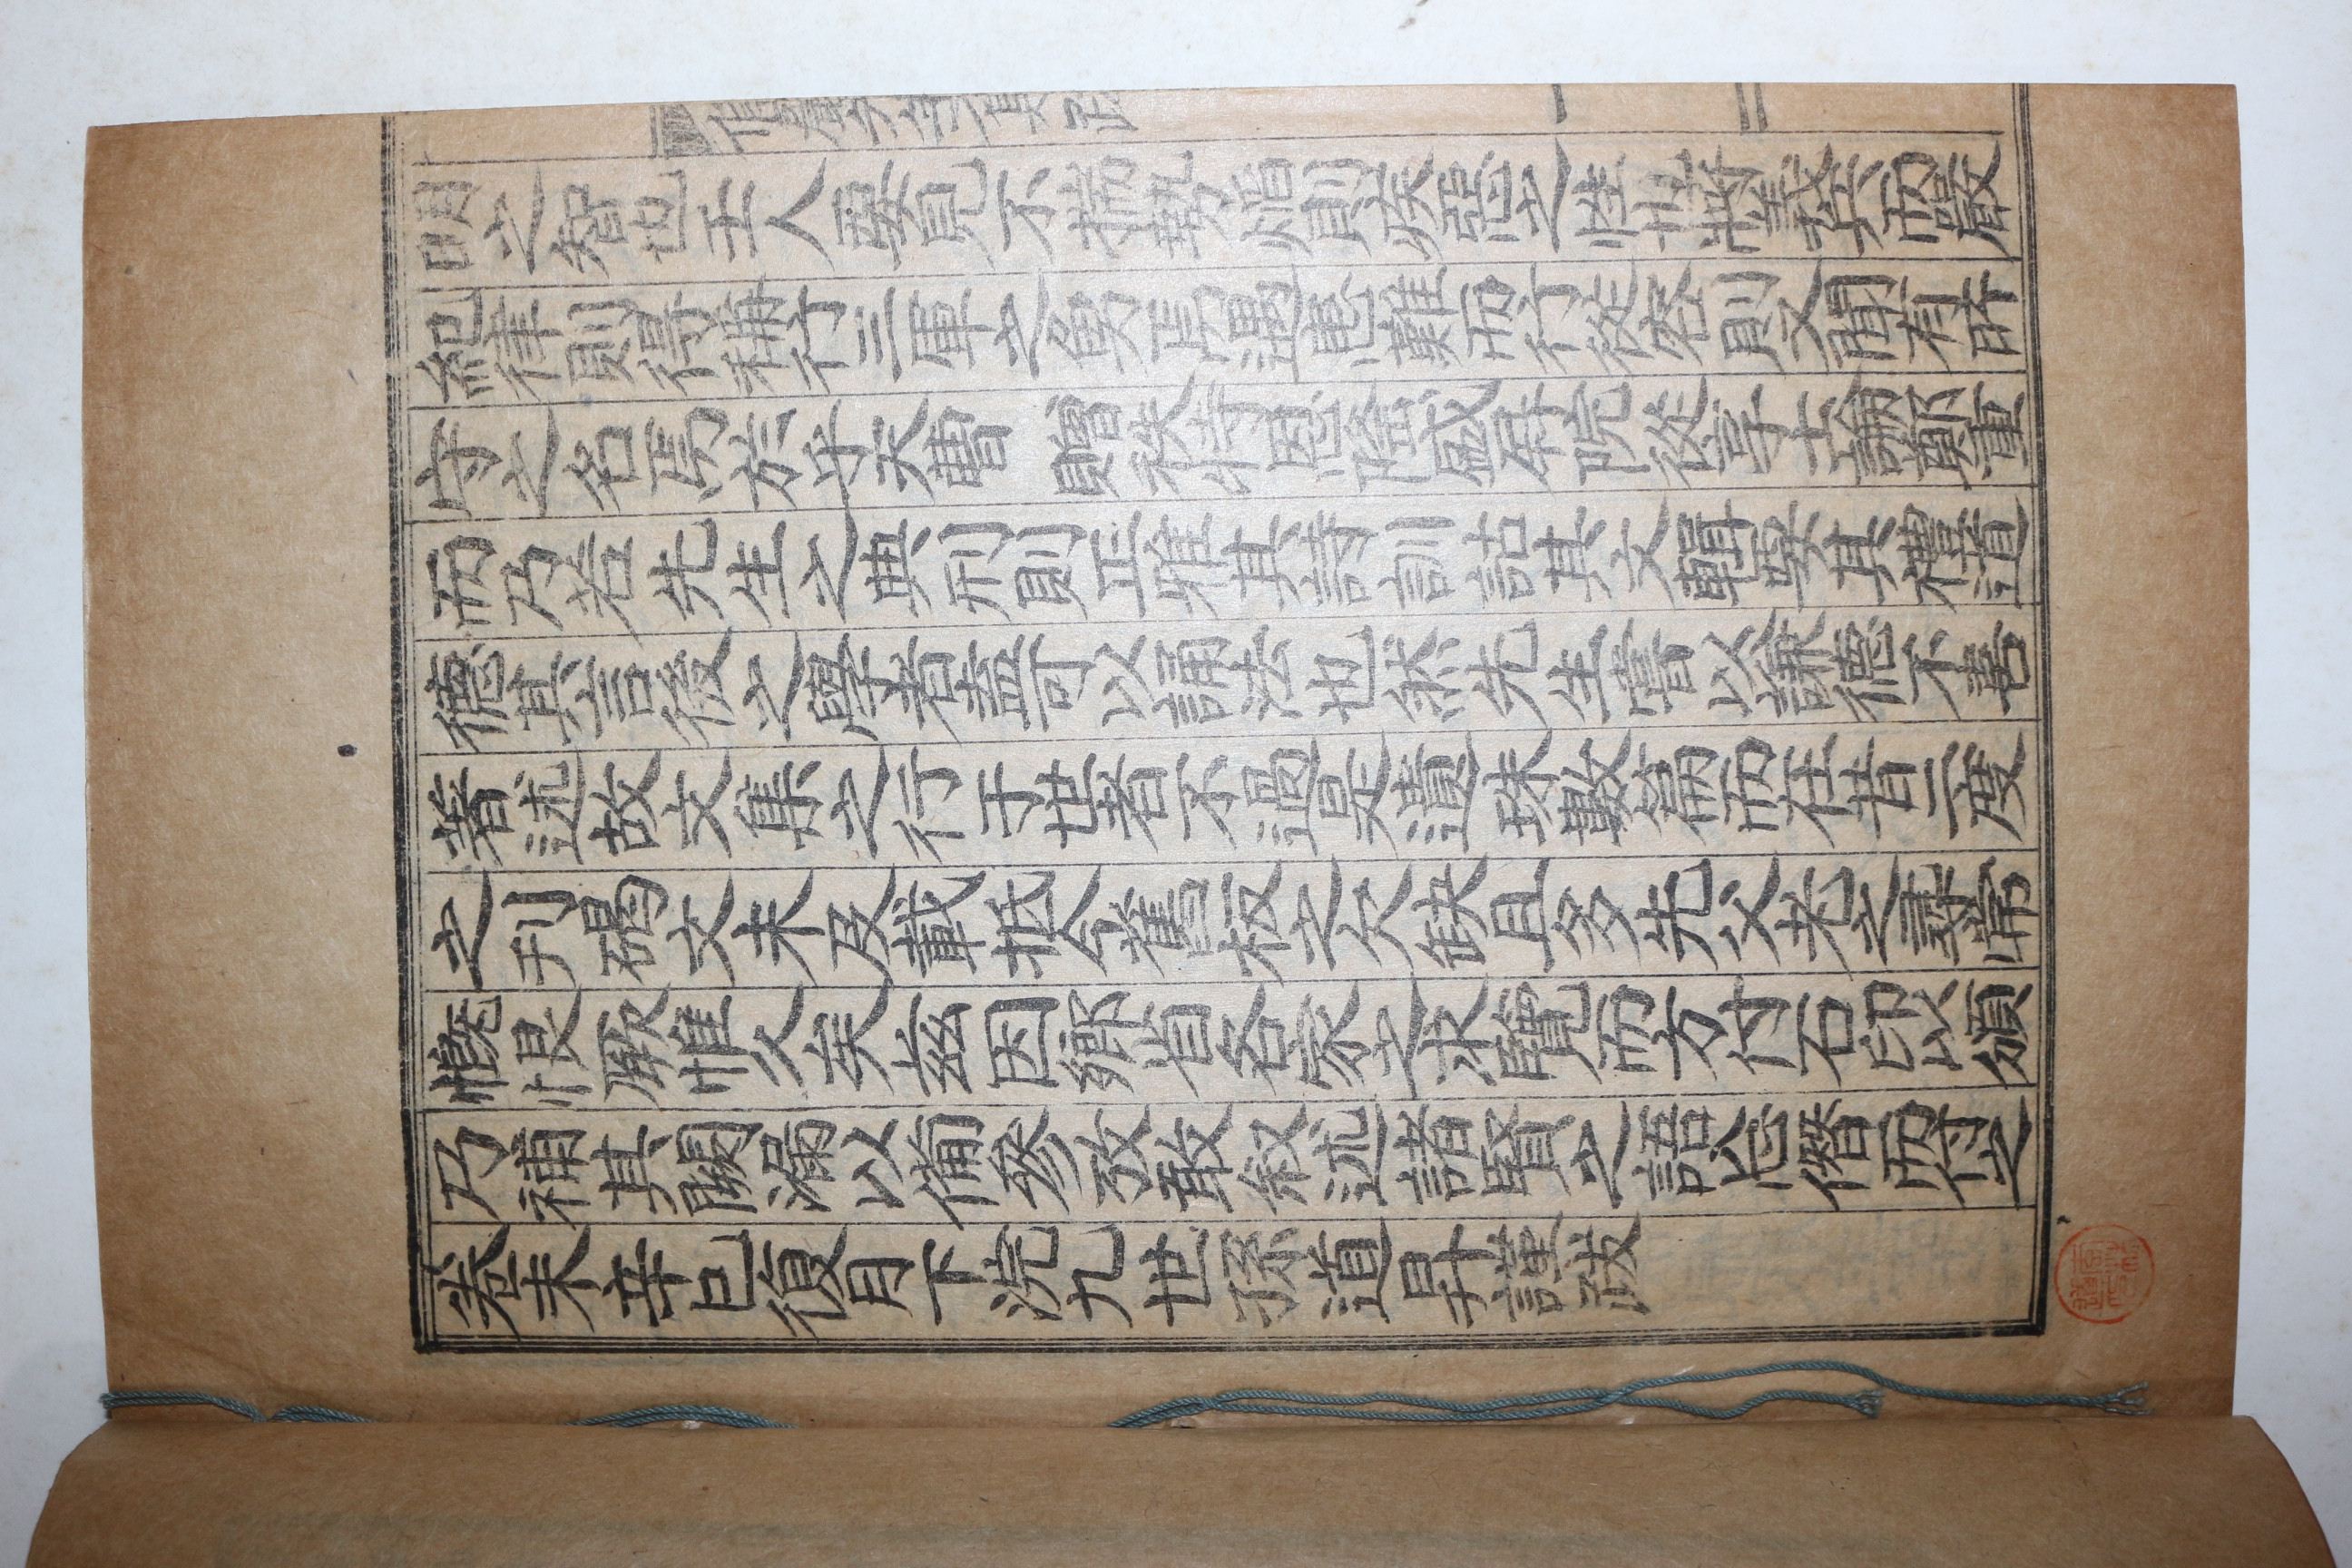 明之智也壬人要見不揣勢焰則疾惡之性也將義兵而嚴
紀律則得稱行三軍之勇焉遇患難而行從容則又聞有所
守之名焉於乎天曹 贈秩特恩隆盛屛院從享士論鄭重
而乃若先生之典刑則正雅其詩訓詁其文輯要其禮道
德其言後之學者盍可以誦法也然先生嘗以謙德不喜
著述故文集之行于世者不過是遺珠數篇而在昔二度
之刋碣文未及載抵今舊板之欠缺且多先父老之尋常
慨恨厥惟久矣玆因鄕省各家之求覽而方付石印以頒
乃補其闕漏以備參攷敢叙述諸賢之語忘僭而付之
卷末辛巳復月下浣九世孫道昇謹跋